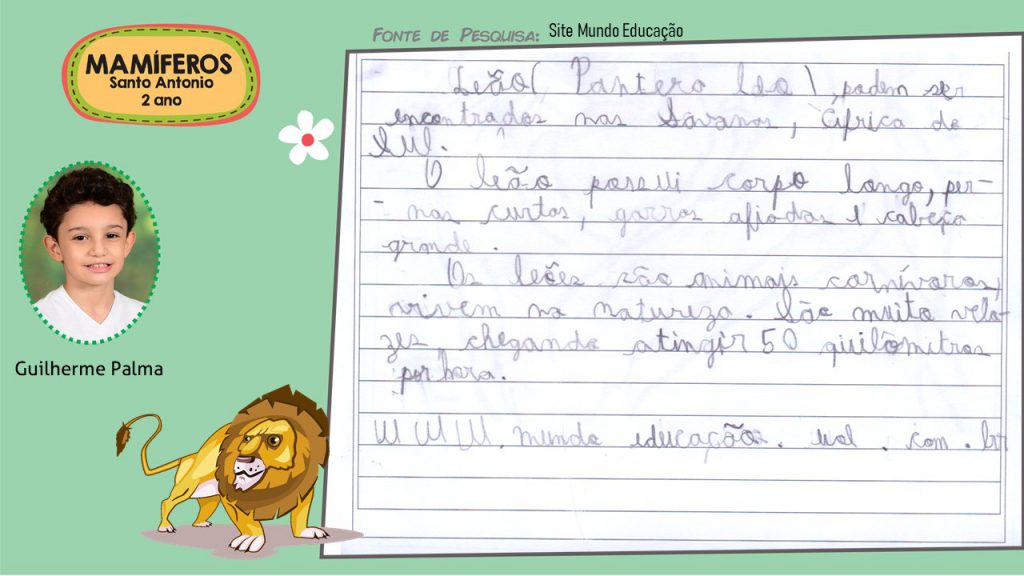 MAMÍFEROS
Santo Antonio
2 ano
Guilherme Palma
FONTE DE PESQUISA: Site Mundo Educação
Leão( Pantera leo ), podem ser
encontrados nas Savanas, África do
Sul.
O leão possui corpo longo, per-
- nas curtas, garras afiadas e cabeça
grande.
Os leões são animais carnívoros,
vivem na natureza. São muito velo-
zes, chegando atingir 50 quilômetros
por hora.
WWW. mundo educação. uol . com . br